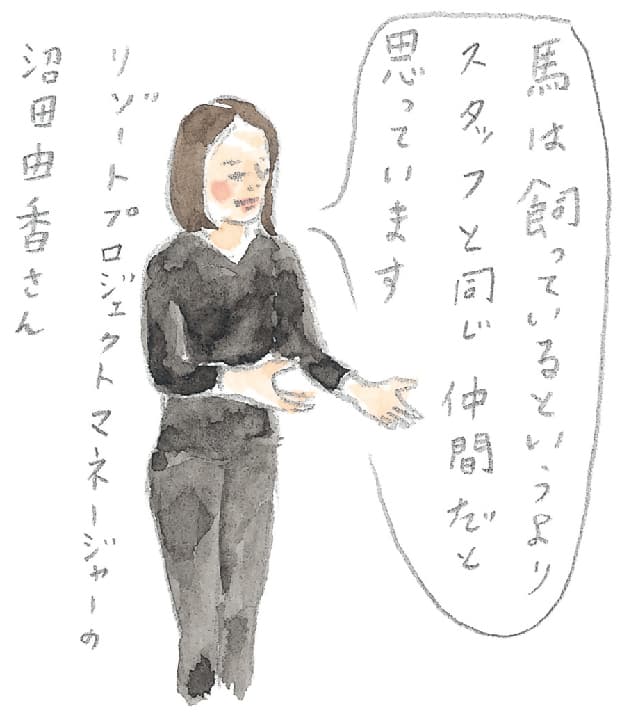 馬は飼っているというより
スタッフと同じ仲間だと
思っています
リゾートプロジェクトマネージャーの
沼田由香さん